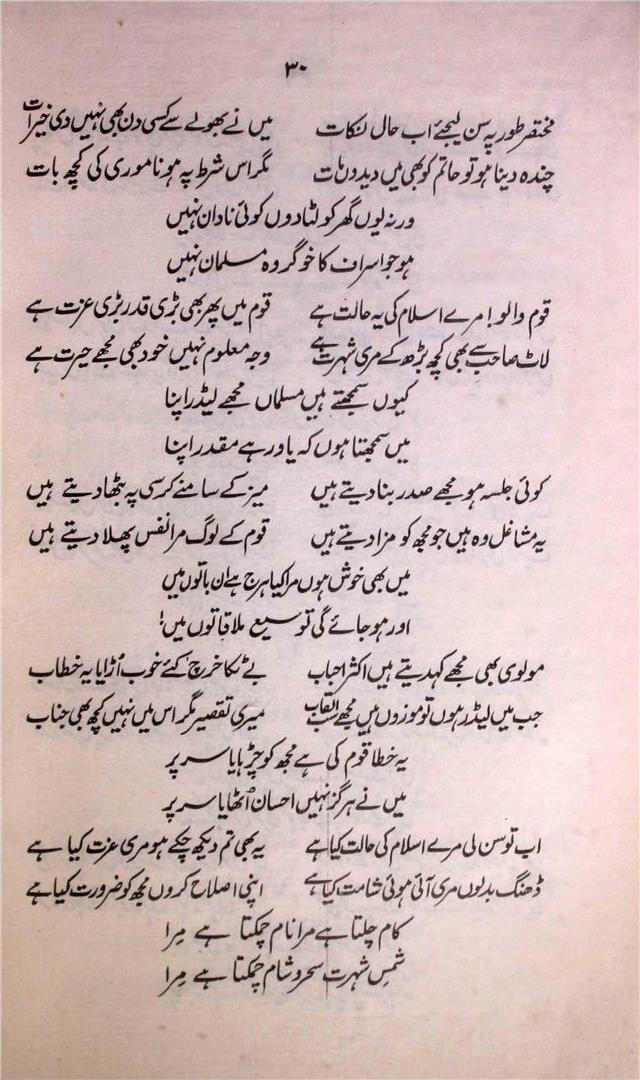 ۳۰
مختصر طور پہ سن لیجئے اب حال لنکات میں نے بھولے سے کسی دن بھی نہیں دی خیرات
چندہ دینا ہو تو حاتم کو بھی میں دیدوں مات مگر اس شرط پہ ہو ناموری کی کچھ بات
ورنہ یوں گھر کو لٹا دوں کوئی نادان نہیں
ہو جو اسراف کا خوگر وہ مسلمان نہیں
قوم والو! مرے اسلام کی یہ حالت ہے قوم میں پھر بھی بڑی قدر بڑی عزت ہے
لاٹ صاحب سے بھی کچھ بڑھ کے مری شہرت ہے وجہ معلوم نہیں خود بھی مجھے حیرت ہے
کیوں سمجھتے ہیں مسلماں مجھے لیڈر اپنا
میں سمجھتا ہوں کہ یاور ہے مقدر اپنا
کوئی جلسہ ہو مجھے صدر بنا دیتے ہیں میز کے سامنے کرسی پہ بٹھا دیتے ہیں
یہ مشاغل وہ ہیں جو مجھ کو مزا دیتے ہیں قوم کے لوگ مرا نفس پھلا دیتے ہیں
میں بھی خوش ہوں مرا کیا ہرج ہے ان باتوں میں
اور ہو جائے گی توسیع ملاقاتوں میں!
مولوی بھی مجھے کہدیتے ہیں اکثر احباب بے ٹکا خرچ کئے خوب اُڑایا یہ خطاب
جب میں لیڈر ہوں تو موزوں ہیں مجھے سب القاب میری تقصیر مگر اس میں نہیں کچھ بھی جناب
یہ خطا قوم کی ہے مجھ کو چڑہایا سر پر
میں نے ہرگز نہیں احسان اُٹھایا سر پر
اب تو سن لی مرے اسلام کی حالت کیا ہے یہ بھی تم دیکھ چکے ہو مری عزت کیا ہے
ڈھنگ بدلوں مری آئی ہوئی شامت کیا ہے اپنی اصلاح کروں مجھ کو ضرورت کیا ہے
کام چلتا ہے مرا نام چمکتا ہے مِرا
شمسِ شہرت سحر و شام چمکتا ہے مِرا